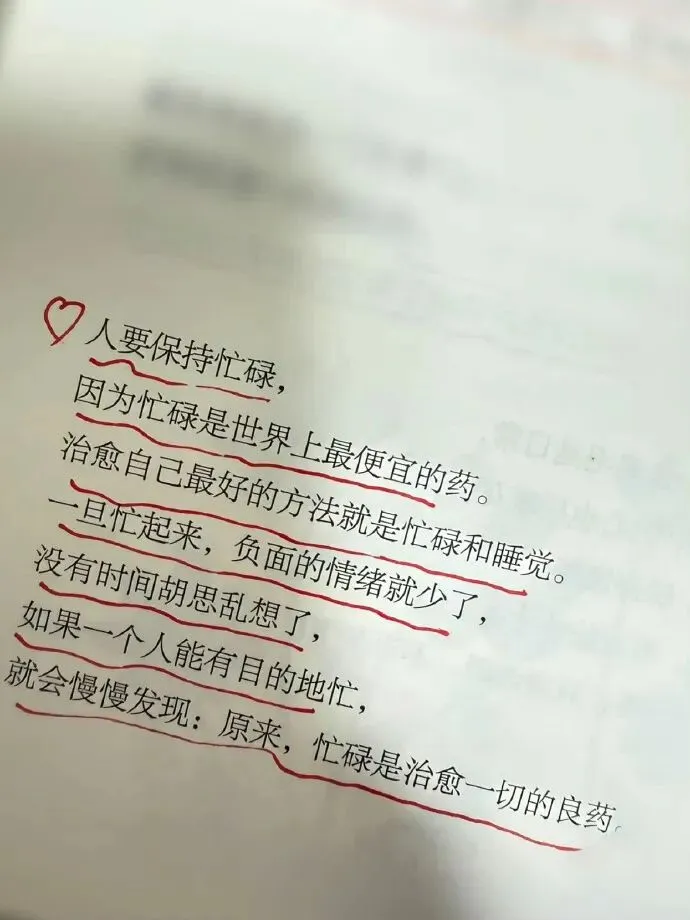 人要保持忙碌，
因为忙碌是世界上最便宜的药。
治愈自己最好的方法就是忙碌和睡觉。
一旦忙起来，负面的情绪就少了，
没有时间胡思乱想了，
如果一个人能有目的地忙，
就会慢慢发现：原来，忙碌是治愈一切的良药。